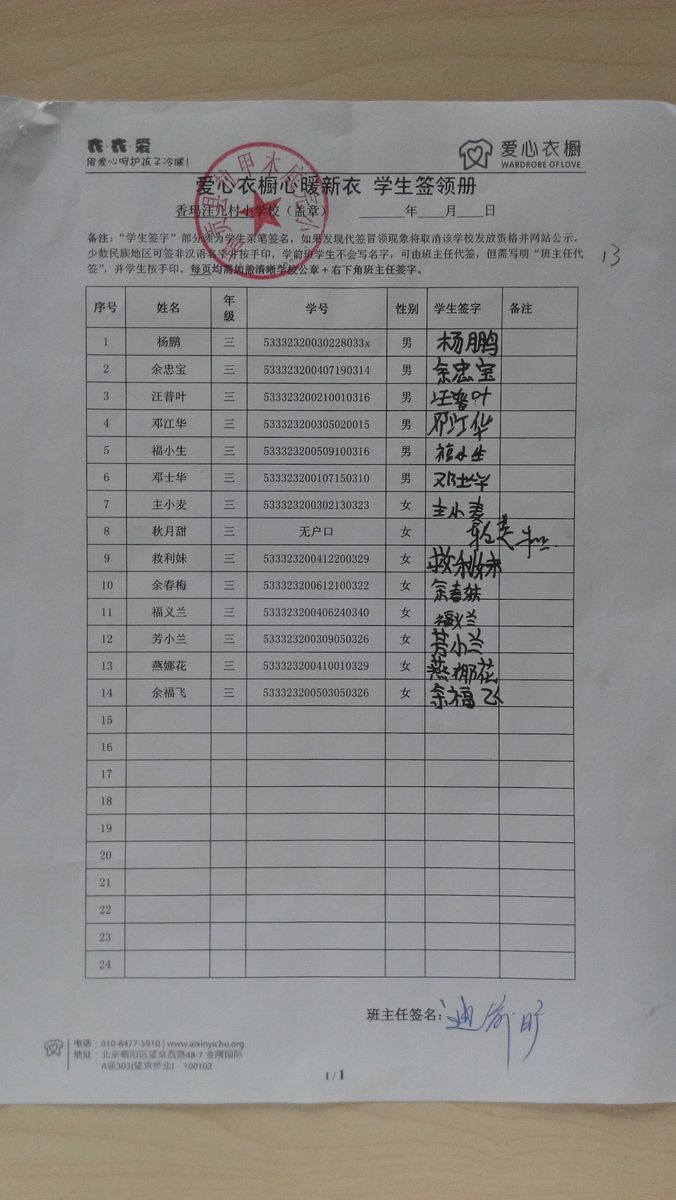 衣·衣·爱
用爱心呵护孩子冷暖!
爱心衣橱
WARDROBE OF LOVE
爱心衣橱心暖新衣 学生签领册
香玛洼几村小学校（盖章） 年 月 日
备注：“学生签字”部分须为学生亲笔签名，如果发现代签冒领现象将取消该学校发放资格并网站公示。
少数民族地区可签非汉语名字并按手印，学前班学生不会写名字，可由班主任代签，但需写明“班主任代
签”，并学生按手印。每页均需加盖清晰学校公章+右下角班主任签字。
13
序号 姓名 年级 学号 性别 学生签字 备注
1 杨鹏 三 53332320030228033x 男 杨鹏
2 余忠宝 三 533323200407190314 男 余忠宝
3 汪普叶 三 533323200210010316 男 汪普叶
4 邓江华 三 533323200305020015 男 邓江华
5 福小生 三 533323200509100316 男 福小生
6 邓士华 三 533323200107150310 男 邓士华
7 主小麦 三 533323200302130323 女 主小麦
8 秋月甜 三 无户口 女
9 救利妹 三 533323200412200329 女 救利妹
10 余春梅 三 533323200612100322 女 余春妹
11 福义兰 三 533323200406240340 女 福义兰
12 芳小兰 三 533323200309050326 女 芳小兰
13 燕娜花 三 533323200410010329 女 燕娜花
14 余福飞 三 533323200503050326 女 余福飞
15
16
17
18
19
20
21
22
23
24
班主任签名：
电话：010-8477-5910 | www.aixinyichu.org
地址：北京朝阳区望京西路48-7 金隅国际
A座303(望京桥北)·100102
1 / 1